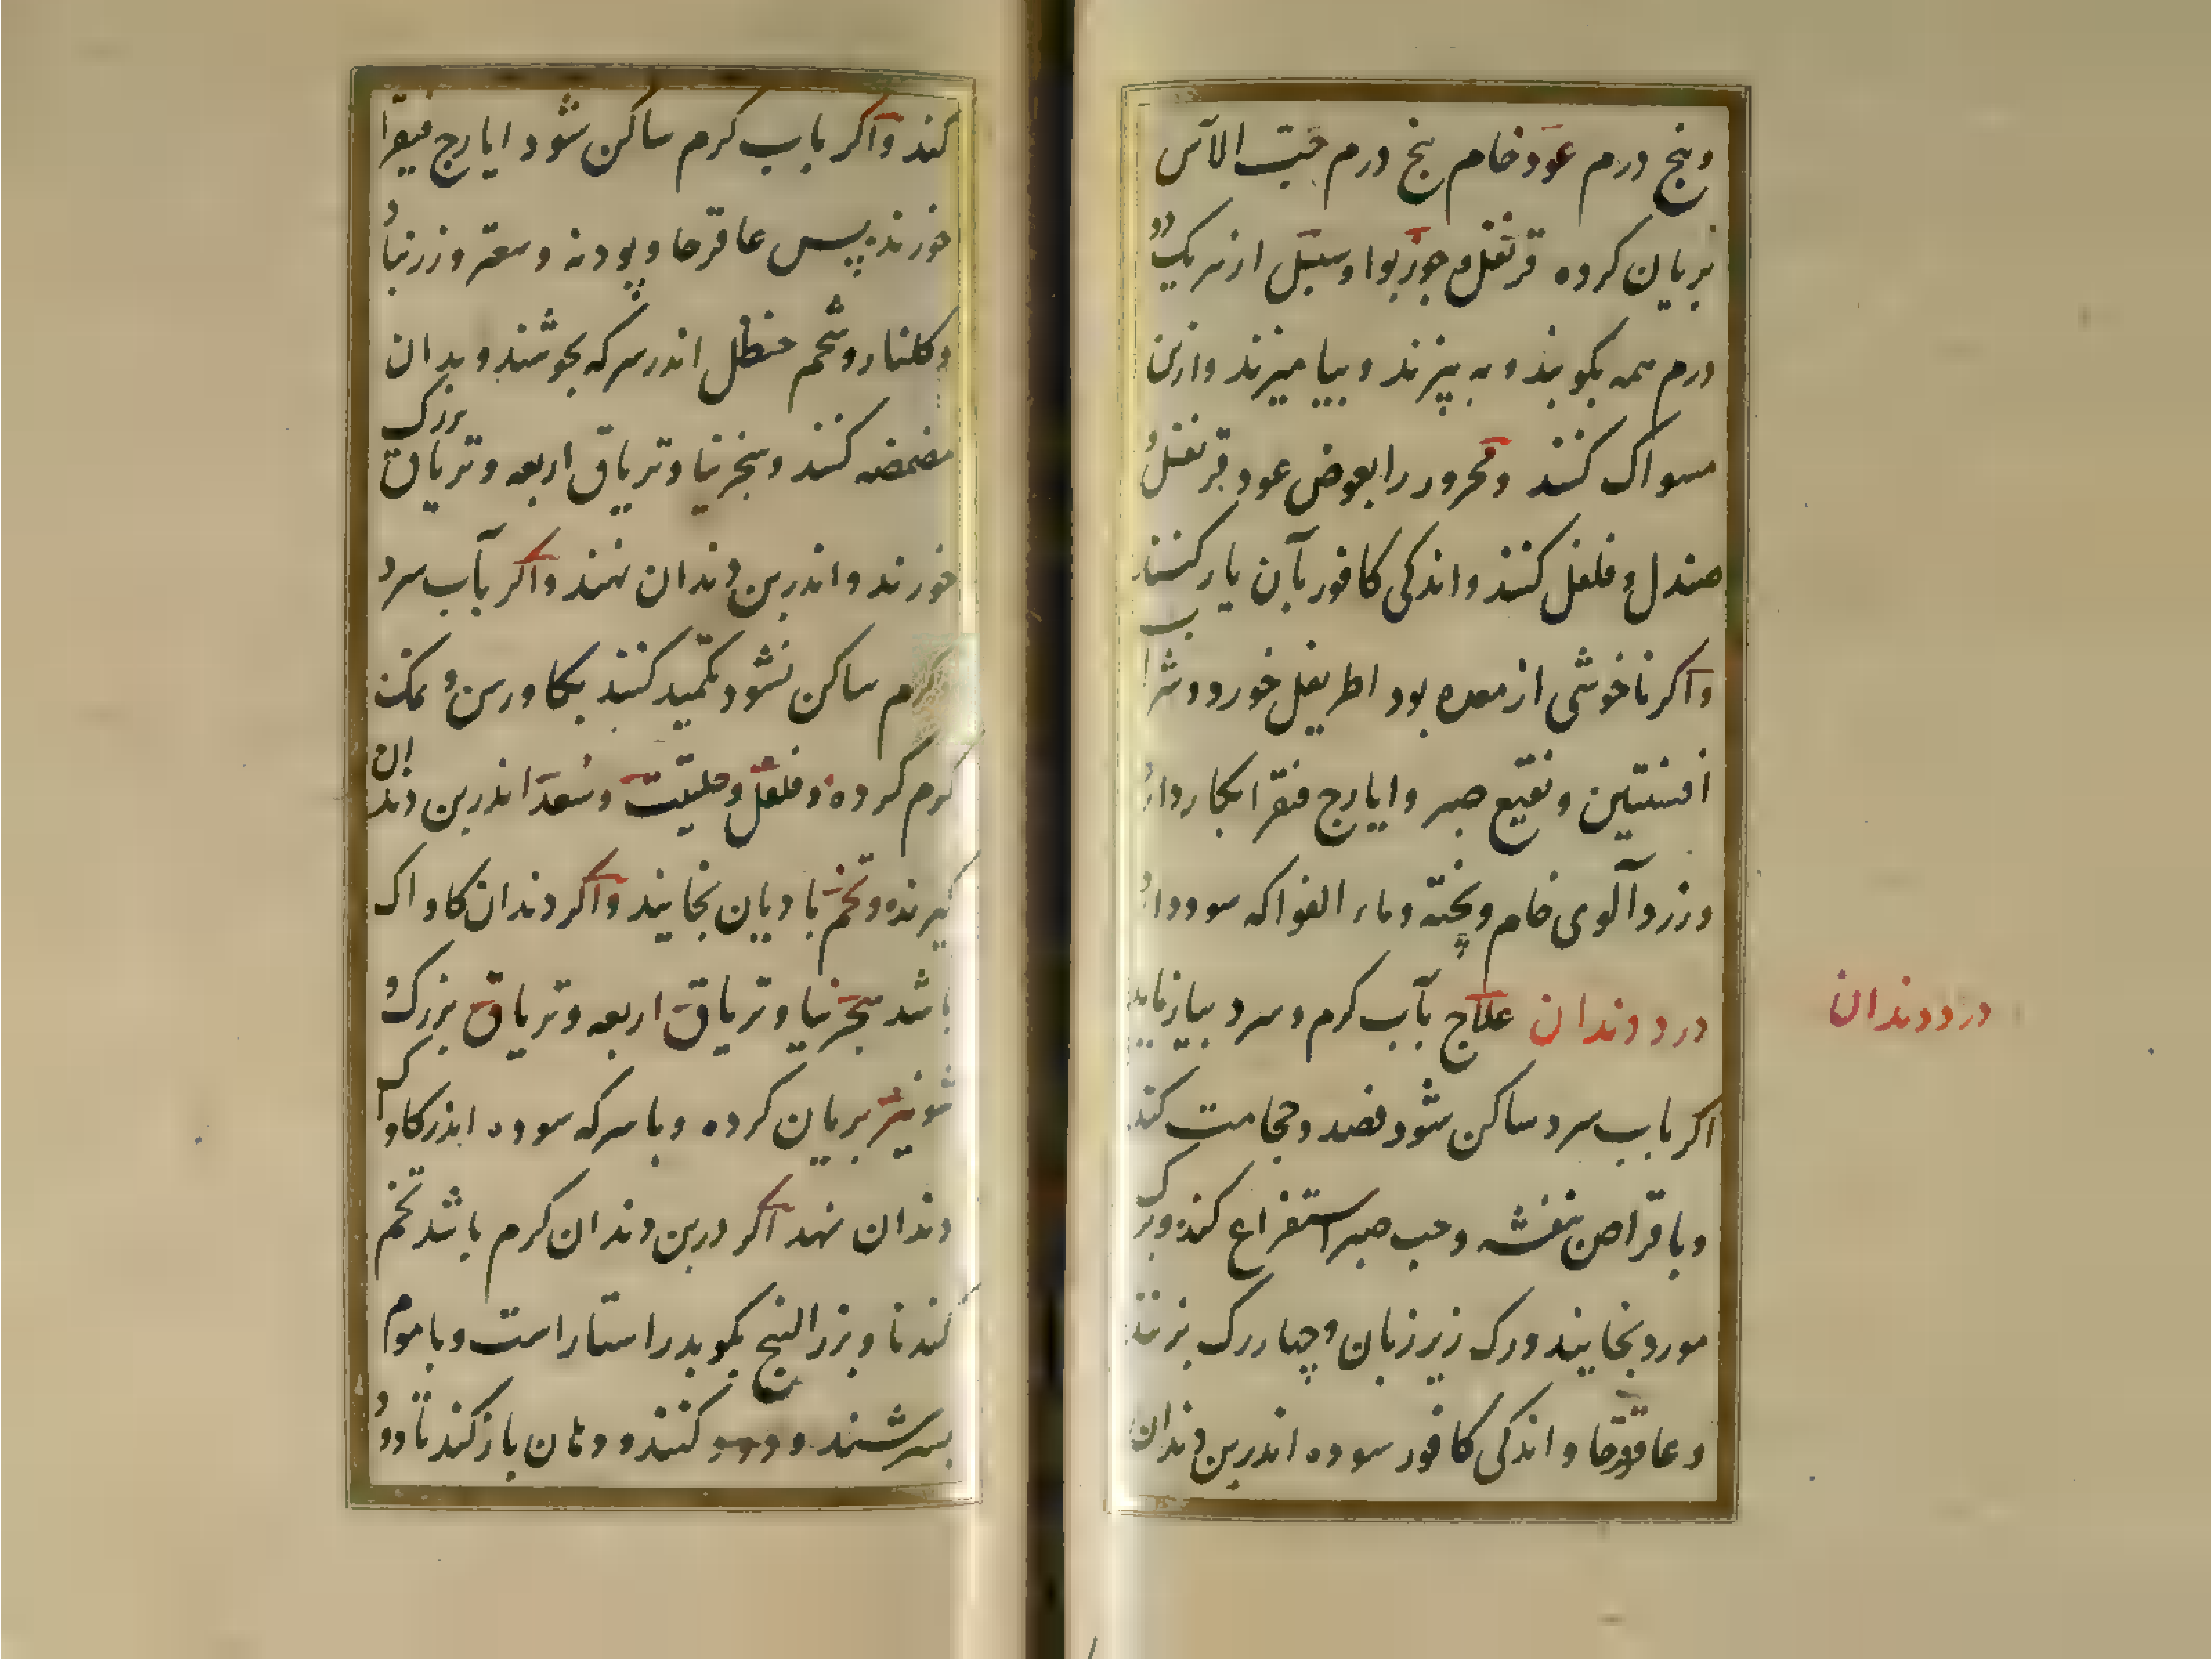 وپنج درم عود خام پنج درم حب الآس
بریان کرده قرنفل و جوز بوا و سنبل از هر یک دو
درم همه بکوبند و به پیزند و بیامیزند و ازین
مسواک کنند و محرور را بعوض عود و قرنفل
صندل و فلفل کنند و اندکی کافور بآن یار کنند
واکر ناخوشی از معده بود اطریفل خورد و شراب
افسنتین و نقیع صبر و ایارج فیقرا بکار دارد
و زردآلوی خام و پخته و ماء الفواکه سود دارد
درد دندان علاج بآب کرم و سرد بیازماید
اکر باب سرد ساکن شود فصد و حجامت کند
و باقراص بنفشه و حب صبر استفراغ کند و برک
مورد بخایند و رک زیر زبان و چهار رک بزنند
و عاقرقرحا و اندکی کافور سوده اندر بن دندان
درد دندان
کند واکر باب کرم ساکن شود ایارج فیقرا
خورند پس عاقرحا و پودنه و سعتر و زرنباد
و کلنار و شحم حنظل اندر سرکه بجوشند و بدان
مضمضه کنند و سنجرنیا و تریاق اربعه و تریاق بزرک
خورند و اندر بن دندان نهند واکر بآب سرد
کرم ساکن نشود تکمید کنند بکاورس و نمک
کرم کرده و فلفل و حلتیت و سُعد اندر بن دندان
کیرند و تخم بادیان بخایند واکر دندان کاواک
باشد سنجرنیا و تریاق اربعه و تریاق بزرک و
شونیز بریان کرده و با سرکه سوده اندر کاواک
دندان نهد اکر در بن دندان کرم باشد تخم
کندنا و بزرالبنج بکوبد راستاراست و باموم
بسرشند و دود کنند و دهان باز کند تا دود